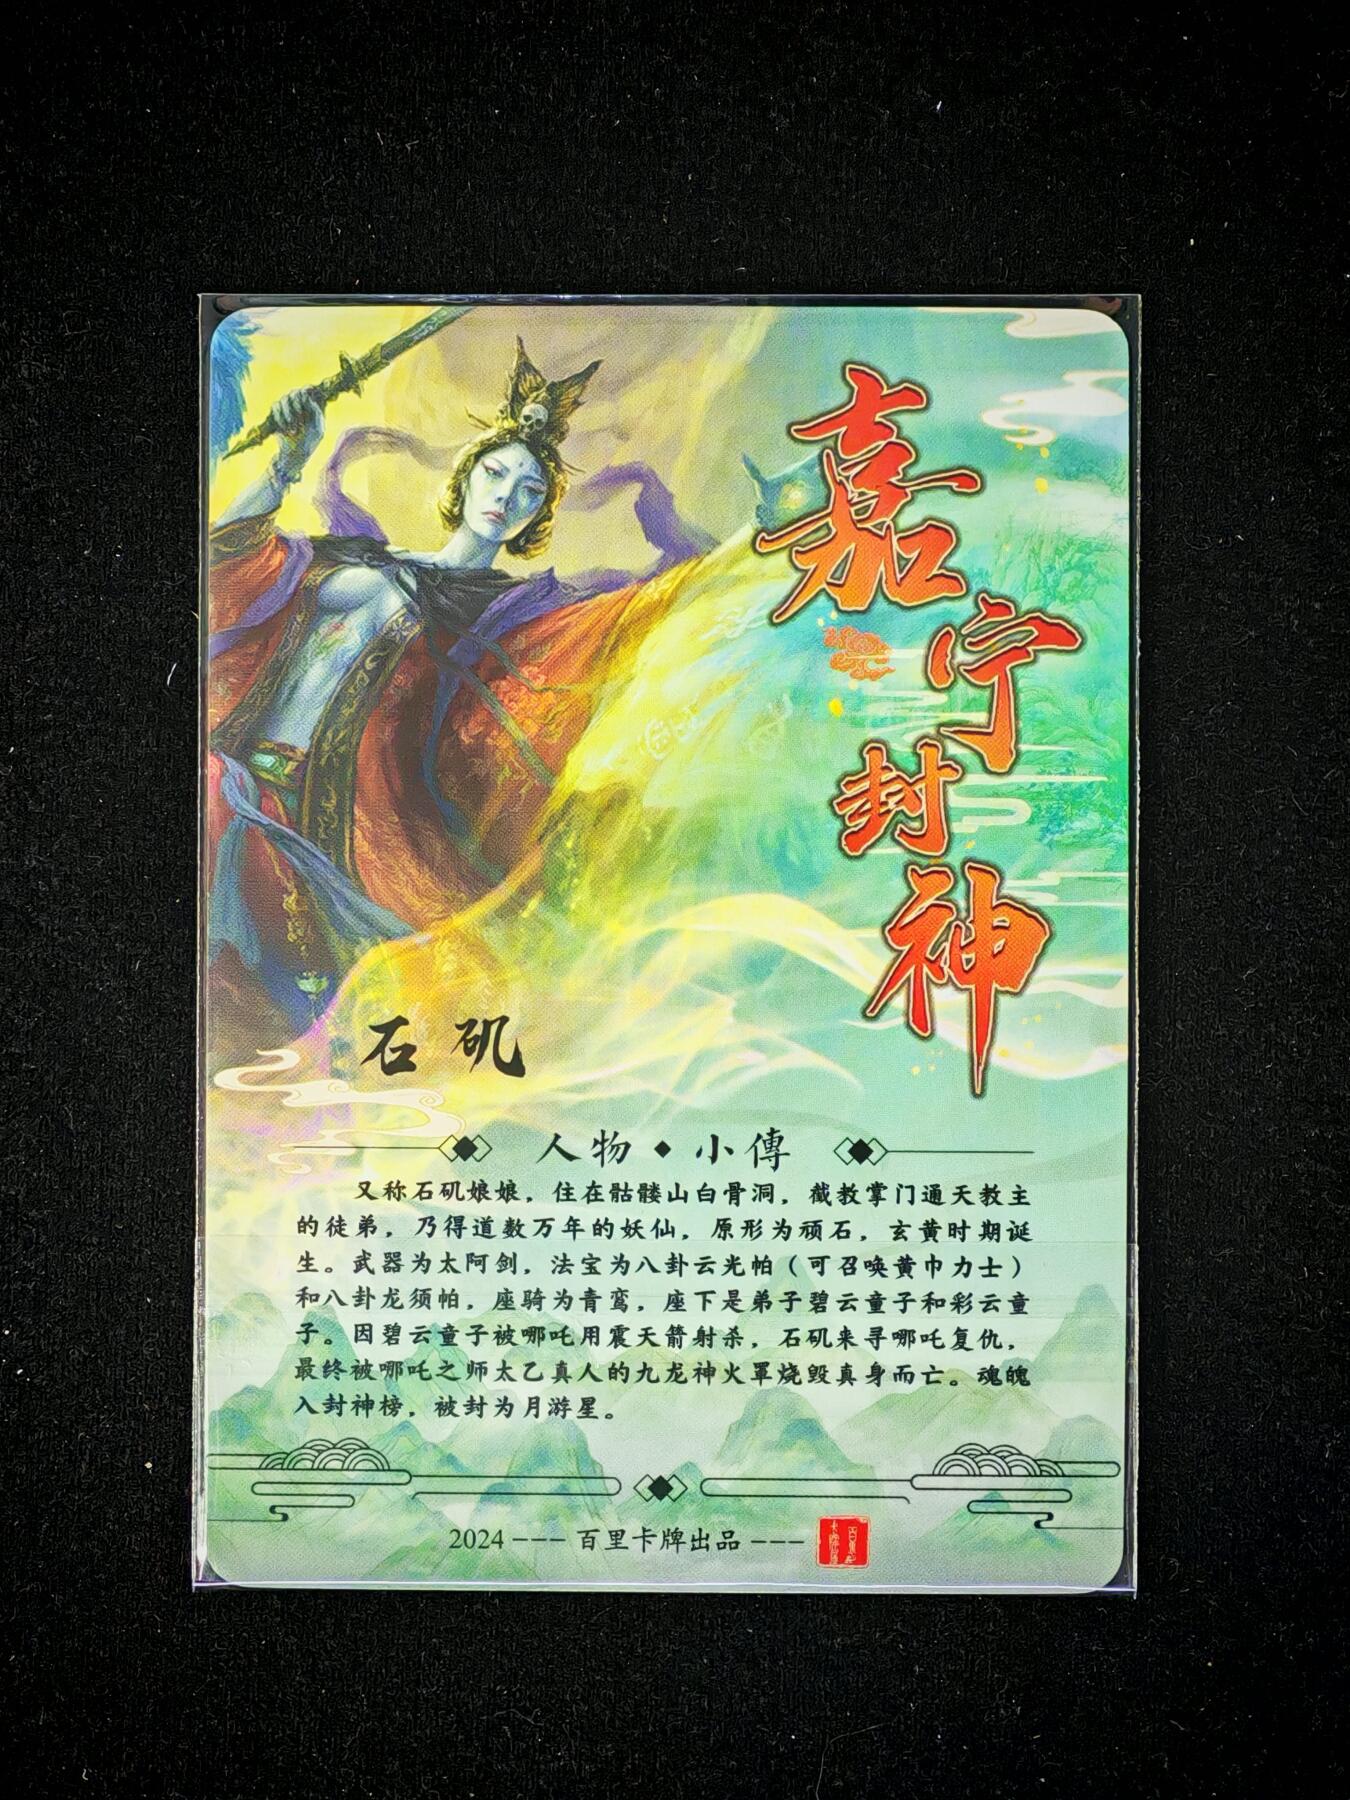 嘉宁封神
石矶
人物◆小傳
又称石矶娘娘，住在骷髅山白骨洞，截教掌门通天教主
的徒弟，乃得道数万年的妖仙，原形为顽石，玄黄时期诞
生。武器为太阿剑，法宝为八卦云光帕（可召唤黄巾力士）
和八卦龙须帕，座骑为青鸾，座下是弟子碧云童子和彩云童
子。因碧云童子被哪吒用震天箭射杀，石矶来寻哪吒复仇，
最终被哪吒之师太乙真人的九龙神火罩烧毁真身而亡。魂魄
入封神榜，被封为月游星。
2024---百里卡牌出品---